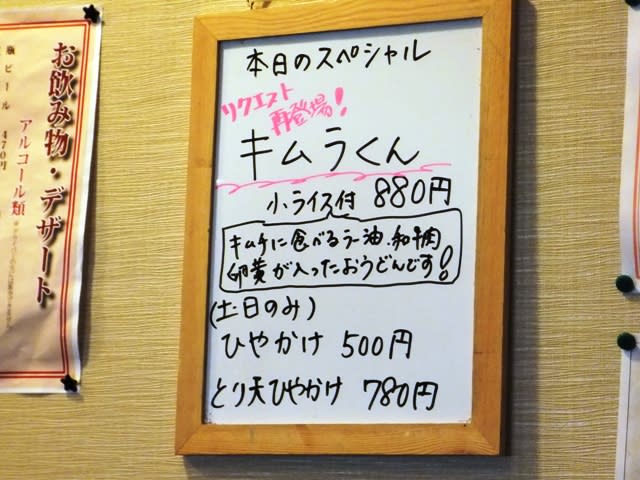 本日のスペシャル
リクエスト
再登場!
キムラくん
小ライス付 880円
キムチに食べるラー油、和牛肉
卵黄が入ったおうどんです!
(土・日のみ)
ひやかけ 500円
とり天ひやかけ 780円
お飲み物・デザート
アルコール類
瓶ビール 470円